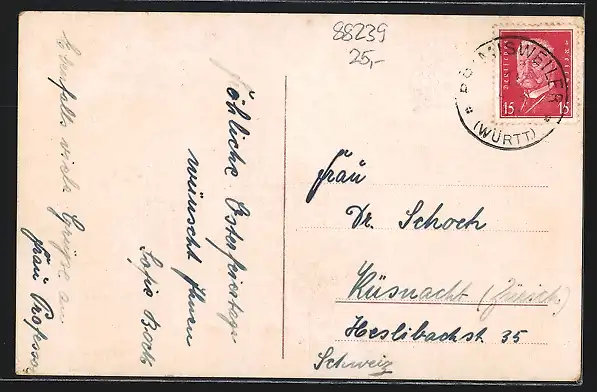 88239
25,-
Fröhliche Osterfeiertage
wünscht Ihnen
Sofie Bock
Ebenfalls viele Grüsse an
Frau Professor
(WÜRTT)
15 15
Frau
Dr. Schoch
Küsnacht (Zürich)
Heslibachst. 35
Schweiz